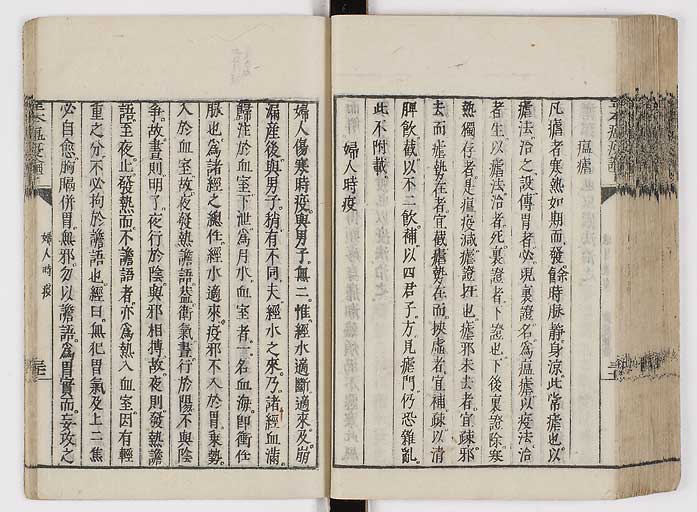 瘟瘧
凡瘧者寒熱如期而發餘時脉靜身涼此常瘧也以
瘧法治之設傳胃者必現裏證名爲瘟瘧以疫法治
者生以瘧法治者死裏證者下證也下後裏證除寒
熱獨存者是瘟疫減瘧證在也瘧邪未去者宜疎邪
去而瘧勢在者宜截瘧勢在而挾虚者宜補疎以清
脾飲截以不二飲補以四君子方見瘧門仍恐雜亂
此不附載
婦人時疫
婦人傷寒時疫與男子無二惟經水適斷適來及崩
漏産後與男子稍有不同夫經水之來乃諸經血滿
歸注於血室下泄爲月水血室者一名血海即衝任
脉也爲諸經之總任經水適來疫邪不入於胃乗勢
入於血室故夜發熱譫語葢衛氣晝行於陽不與陰
爭故晝則明了夜行於陰與邪相搏故夜則發熱譫
語至夜止發熱而不譫語者亦爲熱入血室因有輕
重之分不必拘於譫語也經曰無犯胃氣及上二焦
必自愈胸膈併胃無邪勿以譫語爲胃實而妄攻之
婦人時疫